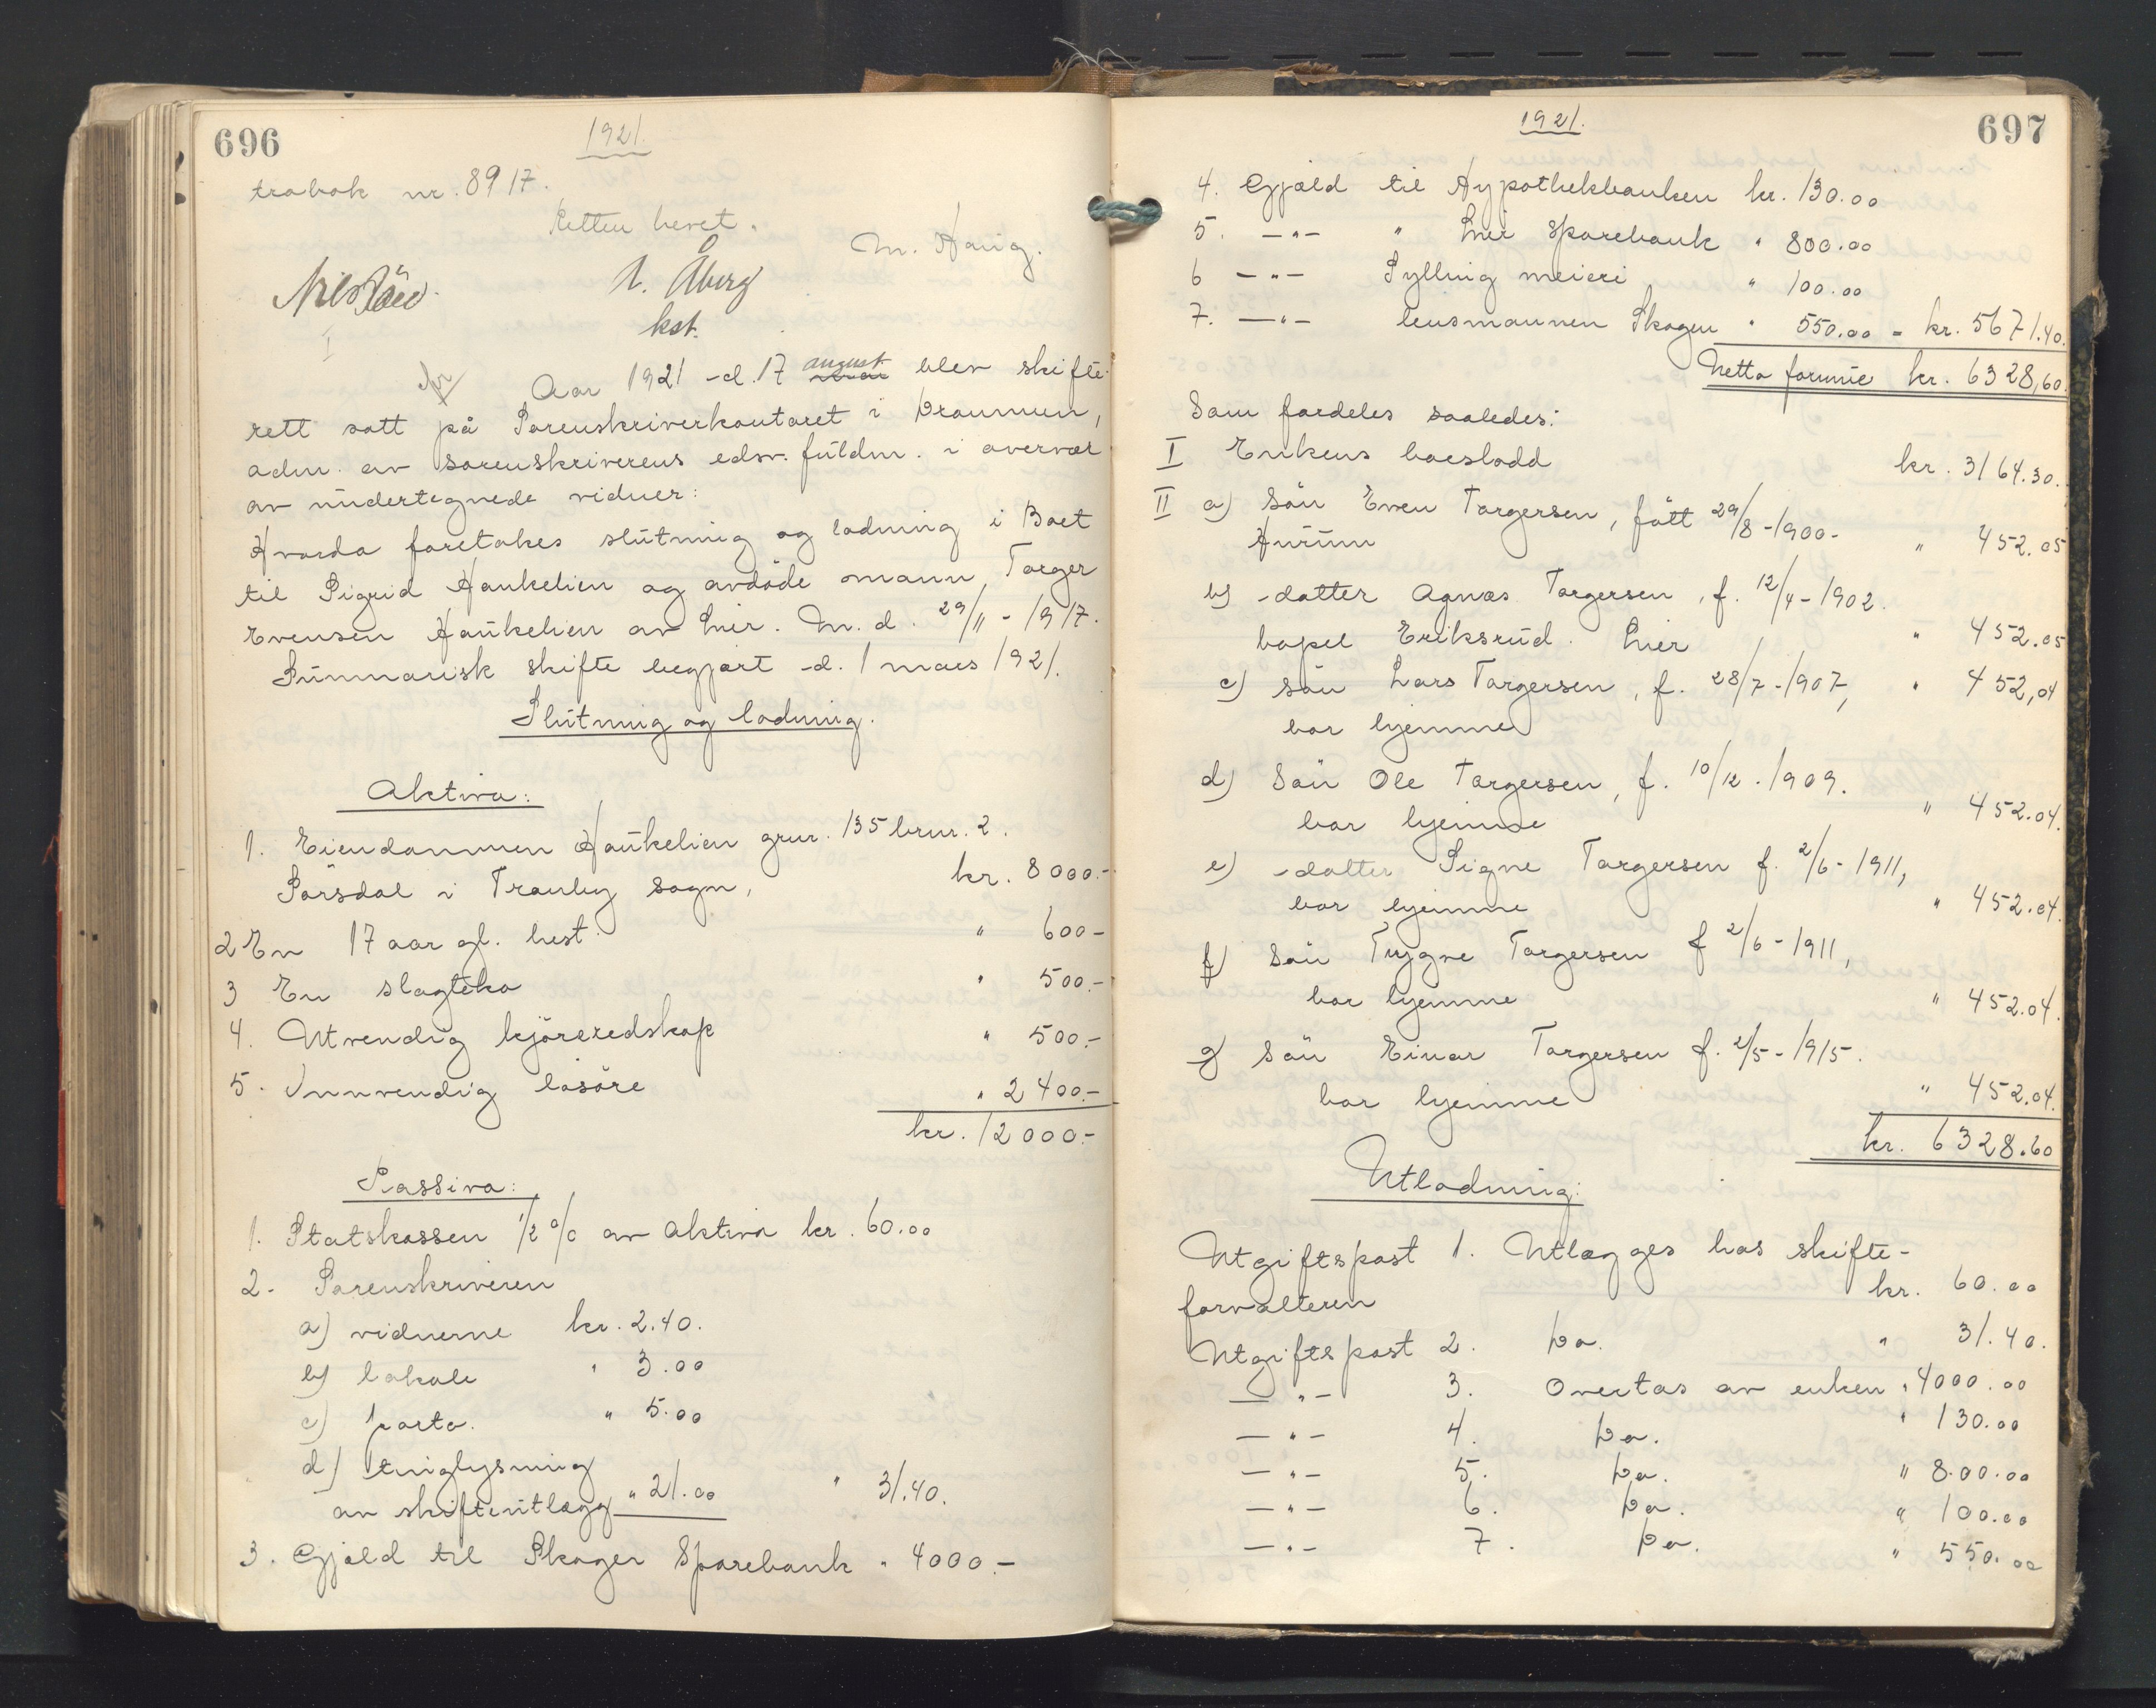 696
1921.
trobok nr. 8917.
Retten hevet.
M. Haug.
N. Åberg
kst.
Aar 1921 d. 17 august blev skifte-
rett satt på Sorenskriverkontoret i Drammen,
adm. av sorenskriverens edsv. fuldm. i overvær
av undertegnede vidner:
Hvorda foretokes slutning og lodning i Boet
til Sigrid Haukelien og avdöde mann, Torger
Evensen Haukelien av Lier. M. d. 29/11 - 1917.
Summarisk skifte begjært d. 1 mars 1921.
Slutning og lodning.
Aktiva:
1. Eiendommen Haukelien gnr. 135 bnr. 2.
Sörsdal i Tranby sogn, kr. 8000.-
2 En 17 aar gl. hest " 600-
3 En slagteko " 500.-
4. Utvendig kjöreredskap " 500.-
5. Innvendig lösöre " 2400.-
kr. 12000.-
Passiva:
1. Statskassen 1/2 % av aktiva kr. 60.00
2. Sorenskriveren
a) vidnerne kr. 2.40.
b) lokale " 3.00
c) porto. " 5.00
d) tinglysning
av skifteutlægg " 21.00 " 31.40.
3. Gjæld til Skoger Sparebank " 4000.-
1921.
697
4. Gjæld til Hypothekbanken kr. 130.00
5. -"- " Lier Sparebank " 800.00
6 -"- Sylling meieri " 100.00
7. -"- lensmannen Skogen " 550.00 - kr. 5671.40.
Netto formue kr. 6328,60.
Som fordeles saaledes:
I Enkens boeslodd kr. 3164.30.
II a) Sön Even Torgersen, fött 29/8 - 1900. " 452.05
Hurum
b) datter Agnes Torgersen, f. 12/4 - 1902.
bopel Eriksrud. Lier " 452.05
c) sön Lars Torgersen, f. 28/7 - 1907, " 452,04
bor hjemme
d) Sön Ole Torgersen, f. 10/12 . 1909.
bor hjemme " 452.04.
e) datter Signe Torgersen f. 2/6 - 1911,
bor hjemme " 452.04.
f) Sön Trygve Torgersen f 2/6 - 1911,
bor hjemme " 452.04.
g) Sön Einar Torgersen f. 2/5 - 1915.
bor hjemme " 452.04.
kr. 6328.60
Utlodning:
Utgiftspost 1. Utlægges hos skifte-
forvalteren kr. 60.00
Utgiftspost 2. Do. " 31.40.
-"- 3. Overtas av enken " 4000.00
-"- 4. Do. " 130.00
-"- 5. Do. " 800.00
-"- 6. Do. " 100.00
-"- 7. Do. " 550.00